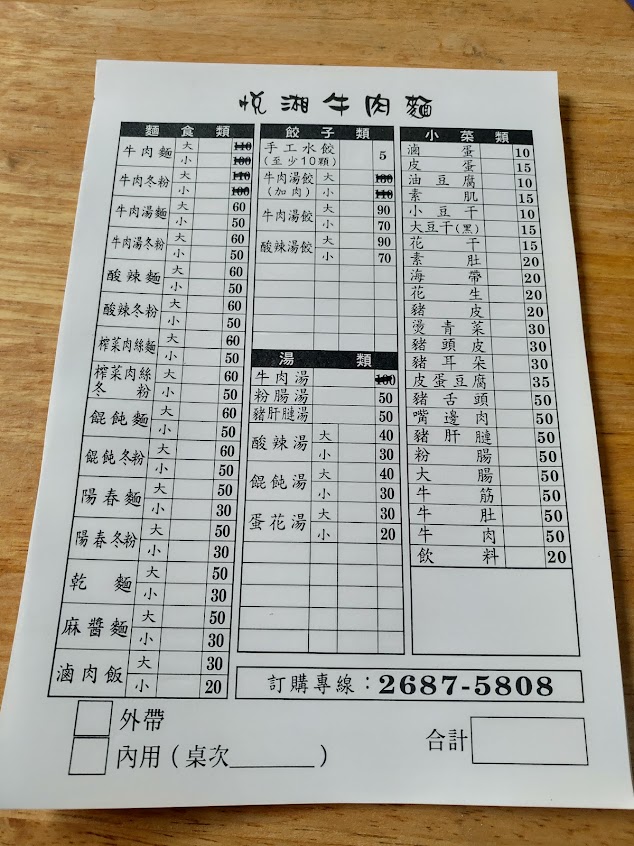 悅湘牛肉麵
麵食類
牛肉麵 大 110
小 100
牛肉冬粉 大 110
小 100
牛肉湯麵 大 60
小 50
牛肉湯冬粉 大 60
小 50
酸辣麵 大 60
小 50
酸辣冬粉 大 60
小 50
榨菜肉絲麵 大 60
小 50
榨菜肉絲 大 60
冬粉 小 50
餛飩麵 大 60
小 50
餛飩冬粉 大 60
小 50
陽春麵 大 50
小 30
陽春冬粉 大 50
小 30
乾麵 大 50
小 30
麻醬麵 大 50
小 30
滷肉飯 大 30
小 20
餃子類
手工水餃 5
(至少10顆)
牛肉湯餃 大
(加肉) 小
牛肉湯餃 大 90
小 70
酸辣湯餃 大 90
小 70
湯類
牛肉湯 100
粉腸湯 50
豬肝膶湯 50
酸辣湯 大 40
小 30
餛飩湯 大 40
小 30
蛋花湯 大 30
小 20
小菜類
滷蛋 10
皮蛋 15
油豆腐 10
素肌 15
小豆干 10
大豆干(黑) 15
花干 15
素肚 20
海帶 20
花生 20
豬皮 20
燙青菜 30
豬頭皮 30
豬耳朵 30
皮蛋豆腐 35
豬舌頭 50
嘴邊肉 50
豬肝膶 50
粉腸 50
大腸 50
牛筋 50
牛肚 50
牛肉 50
飲料 20
訂購專線：2687-5808
外帶
內用（桌次______）
合計